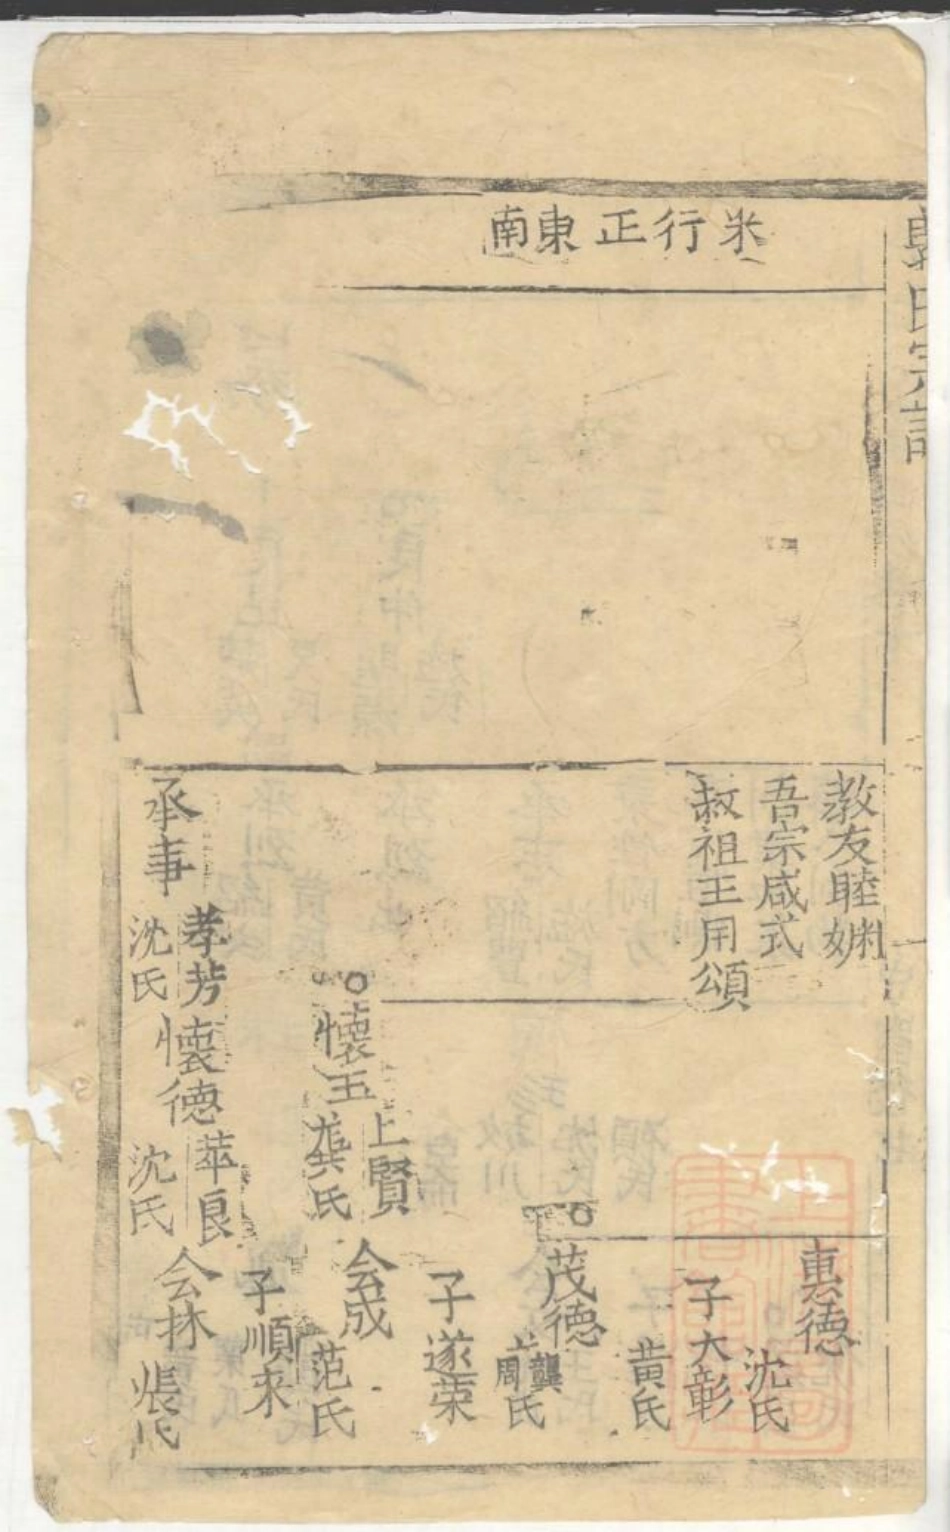 氏宗譜
米行正東南
教友睦婣
吾宗咸式
敍祖王用頌
惠德
沈氏
子大彰
黄氏
茂德
龔
周氏
子遂荣
上賢
懷玉
龔氏
会成
范氏
子順來
承事
孝芳
沈氏
懷德
萃良
沈氏
会林
張氏